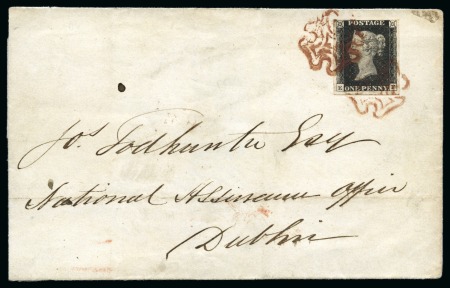 POSTAGE
ONE PENNY
Jos Todhunter Esq
National Assurance Office
Dublin